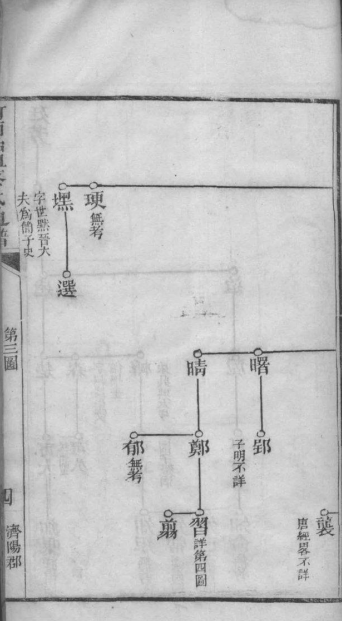 珬 無考
墨 字世黙晉大
夫為簡子史
選
曙
晴
郢 子明不詳
鄭
郁 無考
襲 唐經畧不詳
習 詳第四圖
翦
第三圖
四
濟陽郡